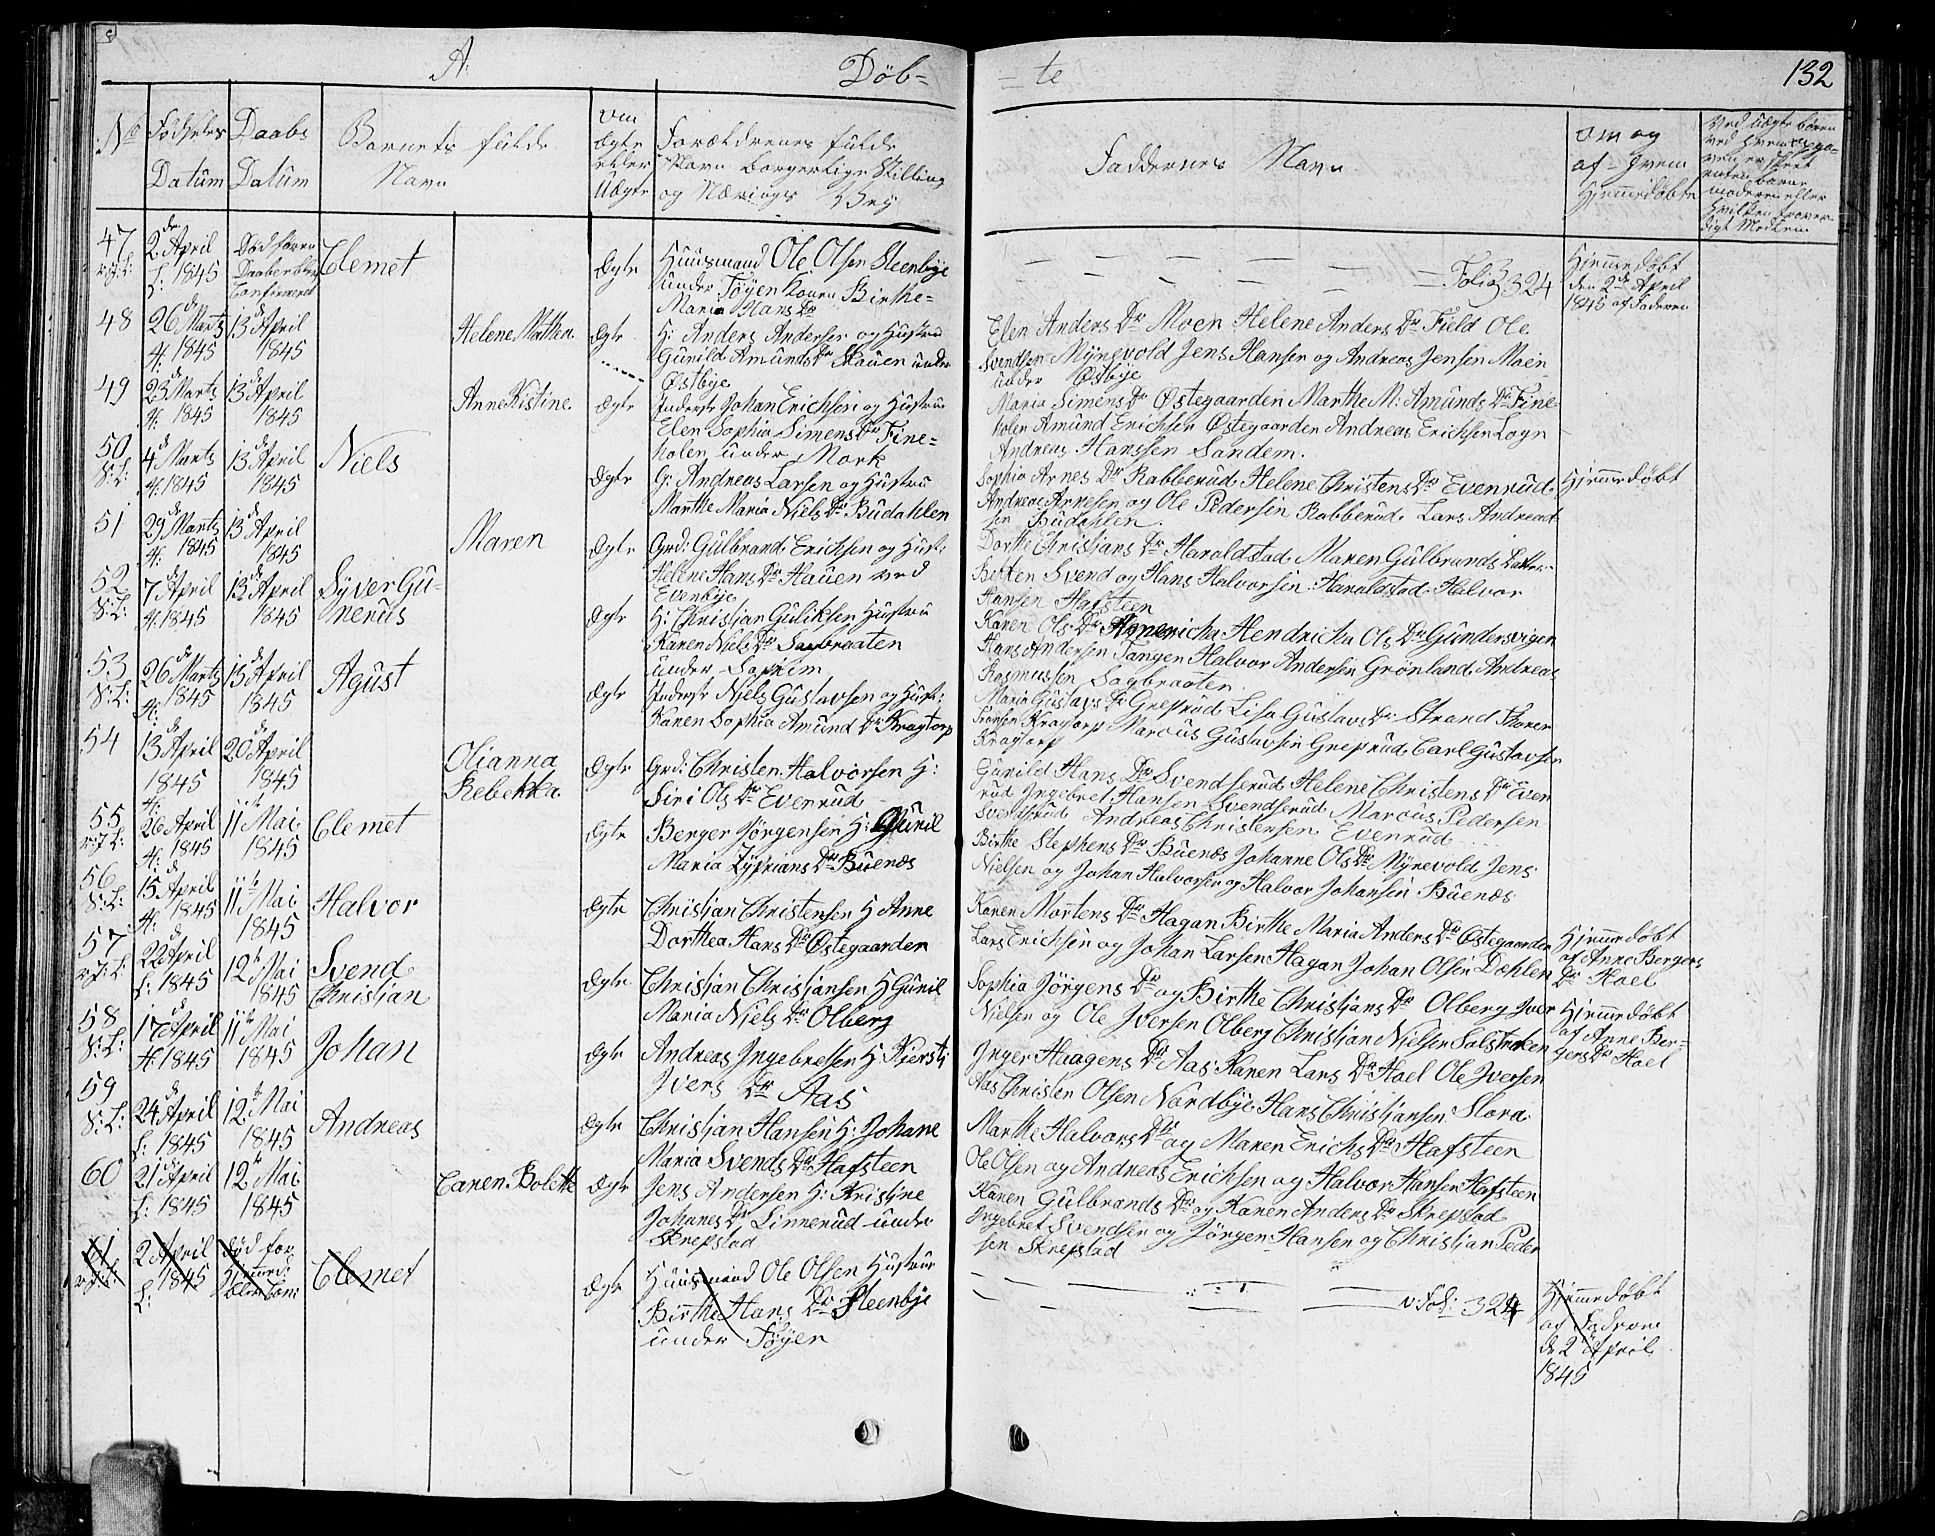 A.
Döb=
= te
132
No
Födsels
Datum
Daabs
Datum
Barnets fulde
Navn
om
Ægte
eller
Uægte
Forældrenes fulde
Navn borgerlige Stilling
og Nærings Vej
Faddernes Navn
om og
af hvem
Hjemmedöbte
47
2 April
1845
Död foren
Daaben blev
Confirmeret
Clemet
Ægte
Huusmand Ole Olsen Steenbye
under Töyen Konen Birthe=
Maria Hans Dr
Folio 324
Hjemmedöbt
den 2de April
1845 af Faderen
48
26 Marts
1845
13de April
1845
Helene Mathea
Ægte
H: Anders Andersen og Hustru
Gunild Amunds Dr Skauen under
Østbye
Elen Anders Dr Moen Helene Anders Dr Field Ole
Svendsen Mÿrevold Jens Hansen og Andreas Jensen Moen
under Østbye
49
23 Marts
1845
13de April
1845
Anne Kistine
Ægte
Inderst Johan Erichsen og Hustrue
Elen Sophia Simens Dr Fine=
holen under Mork
Maria Simens Dr Østegaarden Marthe M: Amunds Dr Fine=
holen Amund Erichsen Østegaarden Andreas Erichsen Logn
Andreas Hanssen Sandem.
50
4 Marts
1845
13de April
1845
Niels
Ægte
G: Andreas Larsen og Hustru
Marthe Maria Niels Dr Budahlen
Sophia Arnes Dr Rabberud Helene Christens Dr Evenrud
Andreas Arnesen og Ole Pedersen Rabberud Lars Andreas
sen Budahlen.
Hjemmedöbt
51
29 Marts
1845
13de April
1845
Maren
Ægte
Grd: Gulbrand Erichsen og Hust:
Helene Hans Dr Hauen ved
Evenbye
Dorthe Christians Dr Haraldstad Maren Gulbrands Datter
Svend og Hans Halvorsen Haraldstad Halvor
Hansen Hafsteen
52
7 April
1845
13de April
1845
Syver Gu-
nerus
Ægte
H: Christian Guliksen Hustru
Karen Niels Dr Sagbraaten
under
Karen Ols Dr Hendricha Ols Dr Gundersvigen
Hans Andersen Tangen Halvor Andersen Grönland Andreas
Rasmussen Sagbraaten
53
26 Marts
1845
13de April
1845
Agust
Ægte
Inderst Niels Gustavsen og Hust:
Karen Sophia Amund Dr Kragtorp
Maria Gustavs Dr Greprud Lisa Gustavs Dr Strand Thorer
Kragtorp Marcus Gustavsen Greprud Carl Gustavsen
Kragtorp
54
13 April
1845
20de April
1845
Olianna
Rebekka
Ægte
Grd: Christen Halvorsen H:
Siri Ols Dr Evenrud
Gunild Hans Dr Svendserud Helene Christens Dr Even
rud Ingebret Hansen Svendserud Marcus Pedersen
Svendsrud Andreas Christensen Evenrud
55
26 April
1845
11te Mai
1845
Clemet
Ægte
Berger Jörgensen H: Guril
Maria Zyprians Dr Buenæs
Birthe Stephens Dr Buenæs Johanne Ols Dr Mÿrevold Jens
Nielsen og Johan Halvorsen og Halvor Johansen Buenæs
56
15 April
1845
11te Mai
1845
Halvor
Ægte
Christian Christensen H Anne
Dorthea Hans Dr Østegaarden
Karen Mortens Dr Hagan Birthe Maria Anders Dr Østegaarden
Lars Erichsen og Johan Larsen Hagan Johan Olsen Dæhlen
Hjemmedöbt
af Anne Bergers
Dr Hoel
57
22 April
1845
12te Mai
1845
Svend
Christian
Ægte
Christian Christiansen H Guril
Maria Niels Dr Olberg
Sophia Jörgens Dr og Birthe Christians Dr Olberg Iver
Nielsen og Ole Iversen Olberg Christian Nielsen
Hjemmedöbt
af Anne Ber=
gers Dr Hoel
58
17 April
1845
11te Mai
1845
Johan
Ægte
Andreas Ingebretsen H: Kiersti
Ivers Dr Aas
Inger Haagens Dr Aas Karen Lars Dr Hoel Ole Iversen
Aas Christen Olsen Nordbye Hans Christiansen Slora.
59
24 April
1845
12te Mai
1845
Andreas
Ægte
Christian Hansen H: Johane
Maria Svends Dr Hafsteen
Marthe Halvors Dr og Maren Erichs Dr Hafsteen
Ole Olsen og Andreas Erichsen og Halvor Hansen Hafsteen
60
21 April
1845
12te Mai
1845
Caren Bolette
Ægte
Jens Andersen H: Kristine
Johanes Dr Linnerud under
Skrepstad
Karen Gulbrands Dr og Karen Anders Dr Skrepstad
Ingebret Svendsen og Jörgen Hansen og Christian Peder
sen Skrepstad
61
2 April
1845
död for
Clemet
Ægte
Huusmand Ole Olsen Hustrue
Birthe Hans Dr Steenbye
under Töyen
v Fol: 324
Hjemmedöbt
af Faderen
de 2 April
1845